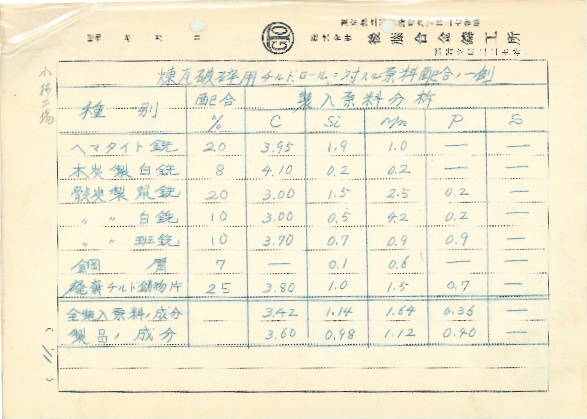 昭和 年 月 日
GTO
株式会社 後藤合金鑄工所
小林工場
煉瓦破砕用チルドロールニ対スル原料配合ノ一例
種別 配合% 装入原料分析
C Si Mn P S
ヘマタイト銑 20 3.95 1.9 1.0 — —
木炭製白銑 8 4.10 0.2 0.2 — —
骸炭製鼠銑 20 3.00 1.5 2.5 0.2 —
〃 〃 白銑 10 3.00 0.5 4.2 0.2 —
〃 〃 斑銑 10 3.70 0.7 0.9 0.9 —
鋼屑 7 — 0.1 0.6 — —
廃棄チルド鋳物片 25 3.80 1.0 1.5 0.7 —
全装入原料ノ成分 3.42 1.14 1.64 0.36 —
製品ノ成分 3.60 0.98 1.12 0.40 —
(11)